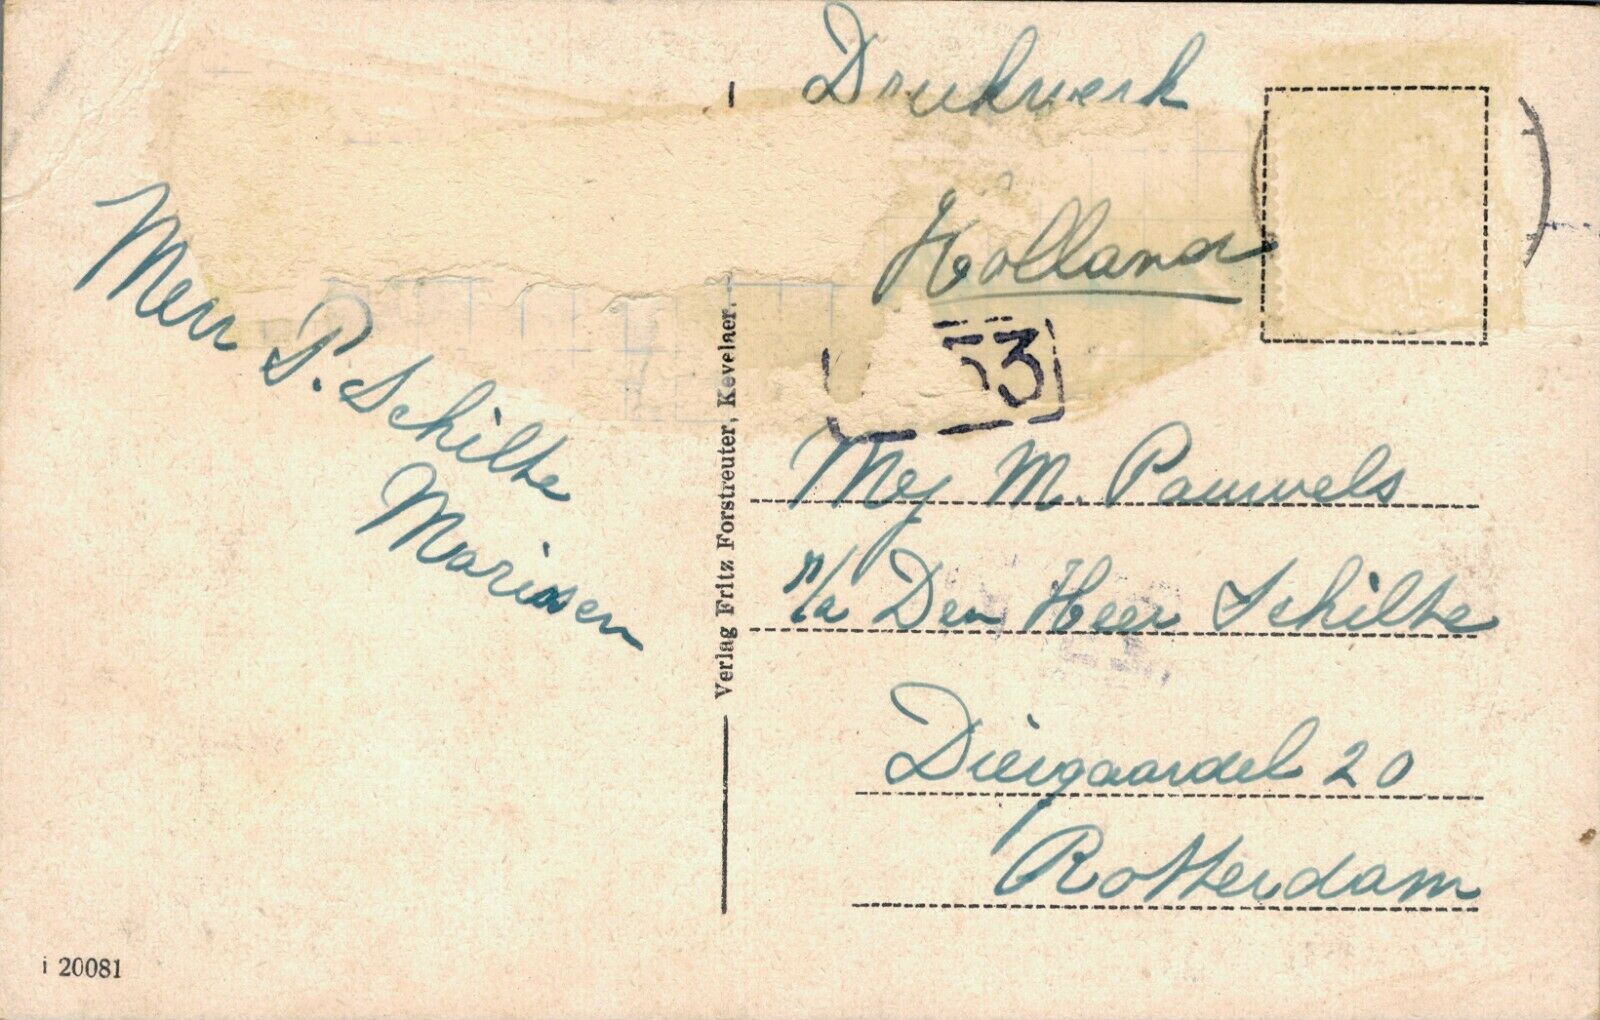 Drukwerk
Holland
53
Mevr P. Schilte
Marissen
Verlag Fritz Forstreuter, Kevelaer.
Mej M. Pauwels
p/a Den Heer Schilte
Diergaardel 20
Rotterdam
i 20081